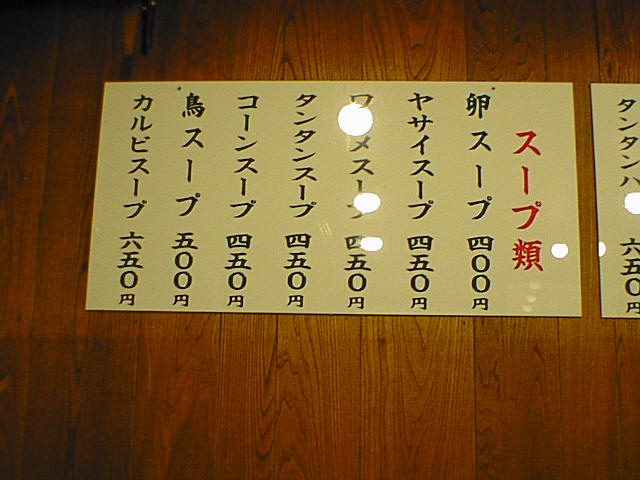 スープ類
卵スープ 四〇〇円
ヤサイスープ 四五〇円
ワカメスープ 四五〇円
タンタンスープ 四五〇円
コーンスープ 四五〇円
鳥スープ 五〇〇円
カルビスープ 六五〇円
タンタンハ 六五〇円